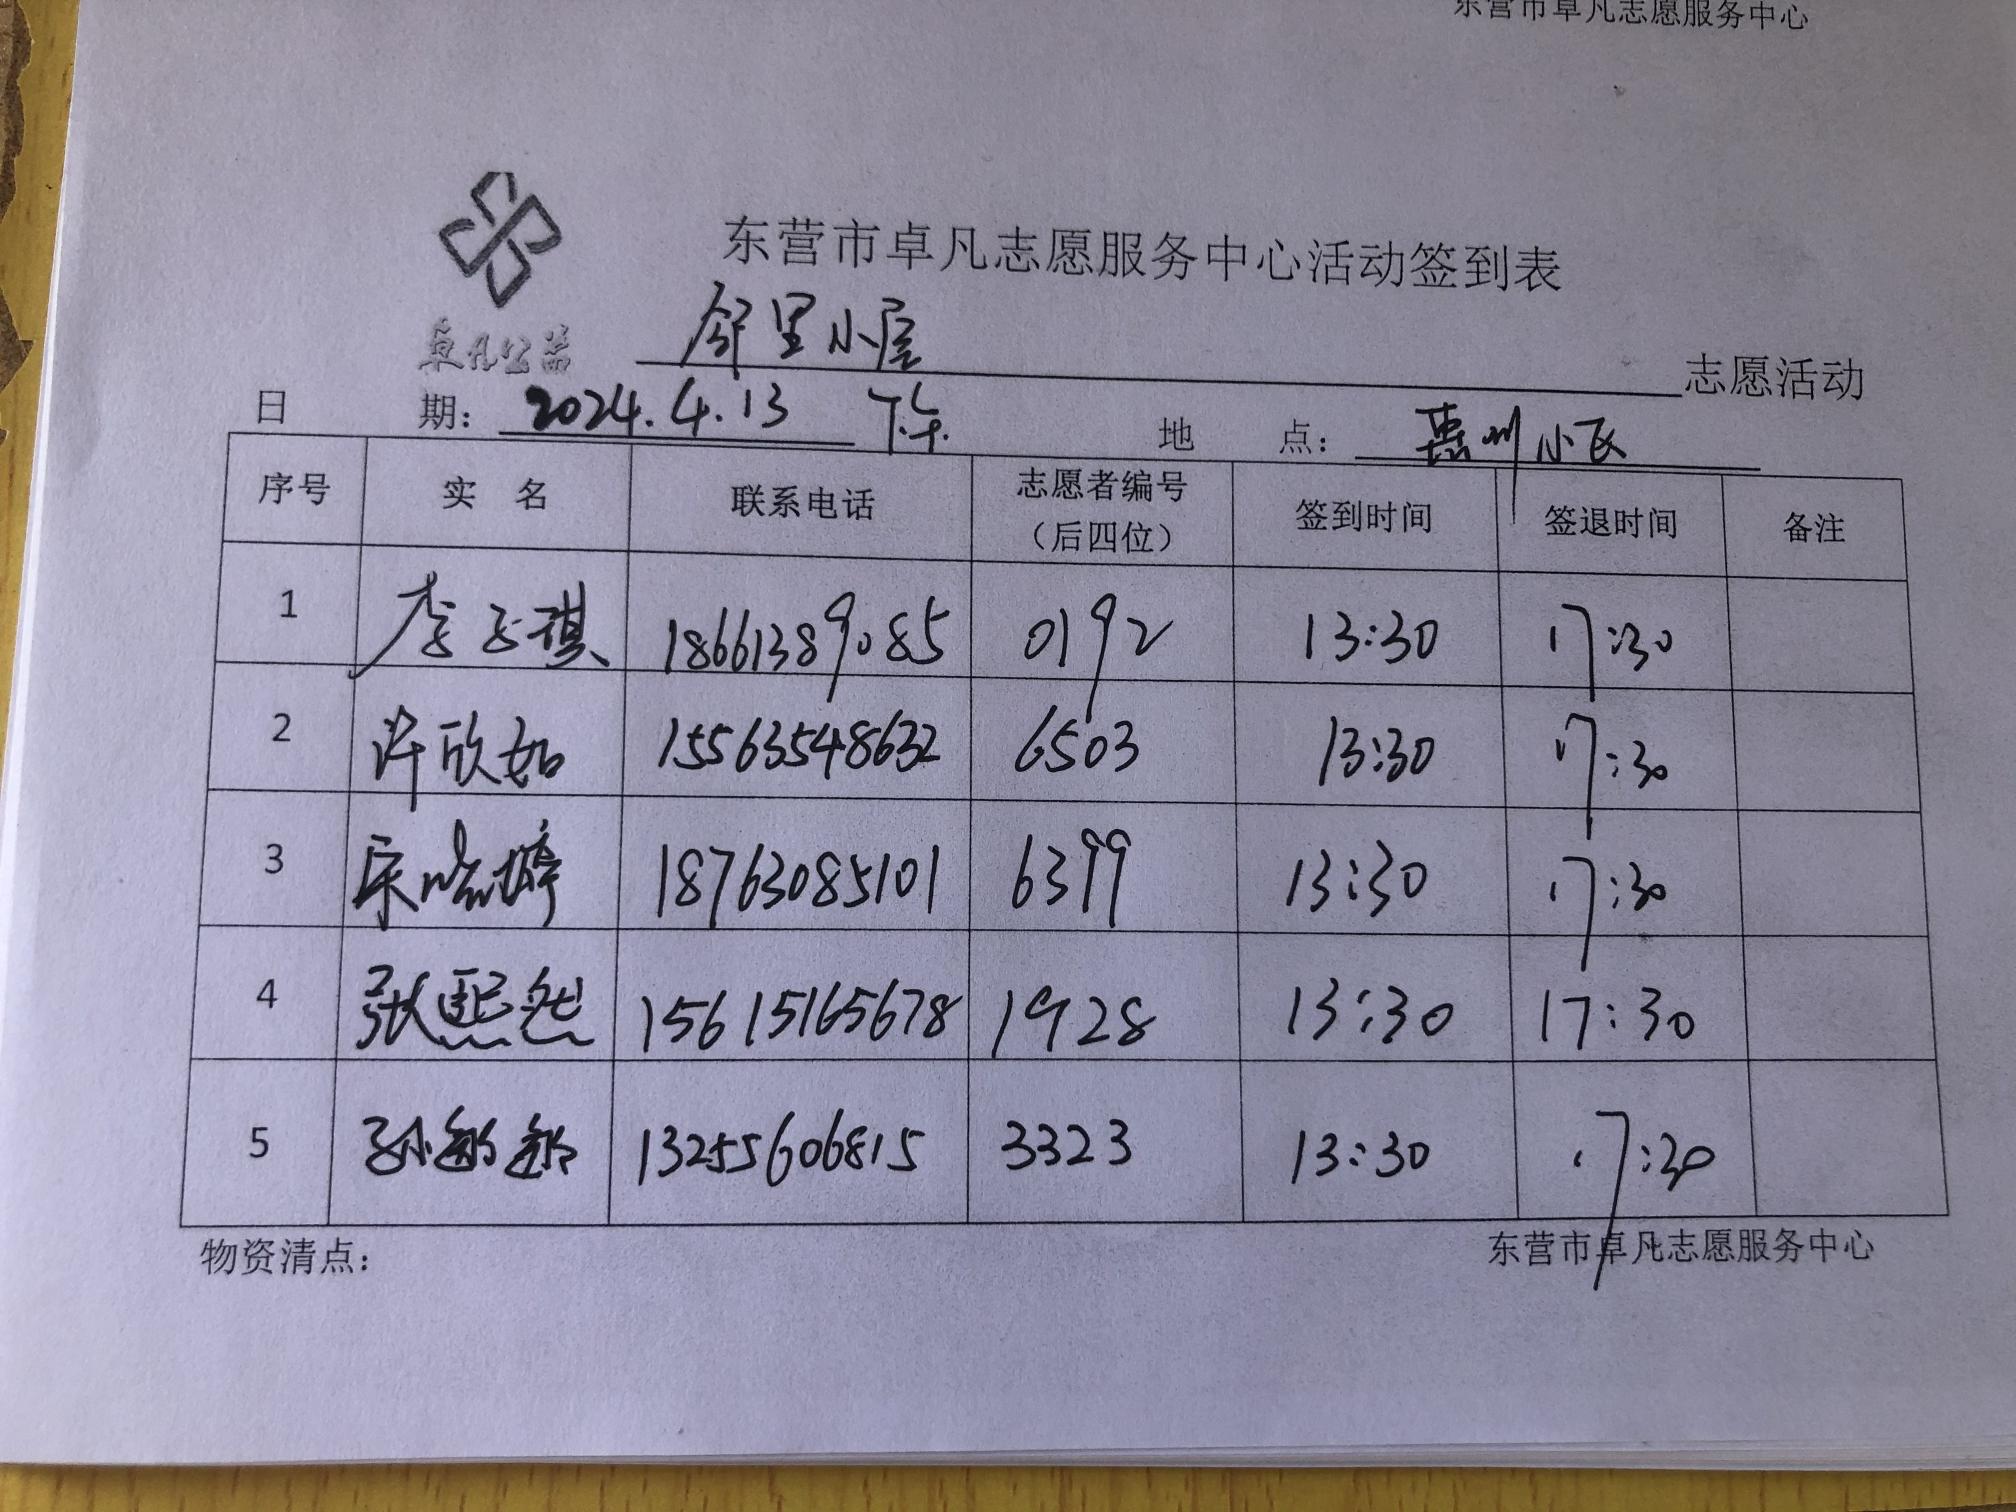 东营市卓凡志愿服务中心
东营市卓凡志愿服务中心活动签到表
卓凡公益
邻里小屋 志愿活动
日 期: 2024.4.13 下午 地 点: 惠州小区
序号 实 名 联系电话 志愿者编号（后四位） 签到时间 签退时间 备注
1 李子琪 18661389085 0192 13:30 17:30
2 许欣如 15563548632 6503 13:30 17:30
3 宋晓婷 18763085101 6399 13:30 17:30
4 张熙然 15615165678 1928 13:30 17:30
5 孙 13255606815 3323 13:30 17:30
物资清点: 东营市卓凡志愿服务中心